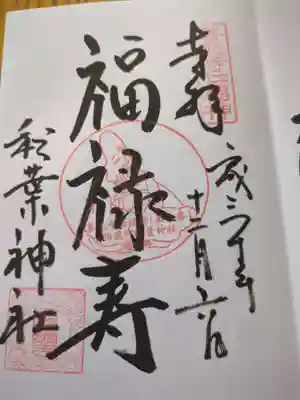 奉拝
成三十年
十二月六日
福禄寿
秋葉神社